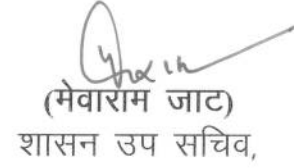 (मेवाराम जाट)
शासन उप सचिव,